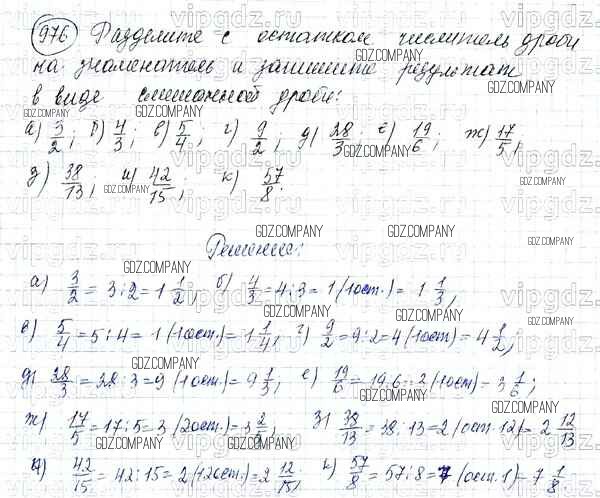 976 Разделите с остатком числитель дроби
на знаменатель и запишите результат
в виде смешанной дроби:
а) 3/2; б) 4/3; в) 5/4; г) 9/2; д) 28/3; е) 19/6; ж) 17/5;
з) 38/13; и) 42/15; к) 57/8.
Решение:
а) 3/2 = 3:2 = 1 1/2, б) 4/3 = 4:3 = 1 (1 ост.) = 1 1/3,
в) 5/4 = 5:4 = 1 (1 ост.) = 1 1/4, г) 9/2 = 9:2 = 4 (1 ост) = 4 1/2,
д) 28/3 = 28:3 = 9 (1 ост.) = 9 1/3, е) 19/6 = 19:6 = 2 (1 ост) = 3 1/6;
ж) 17/5 = 17:5 = 3 (2 ост.) = 3 2/5, з) 38/13 = 38:13 = 2 (ост. 12) = 2 12/13
и) 42/15 = 42:15 = 2 (12 ост.) = 2 12/15, к) 57/8 = 57:8 = 7 (ост. 1) = 7 1/8.
GDZ.COMPANY
vipgdz.ru